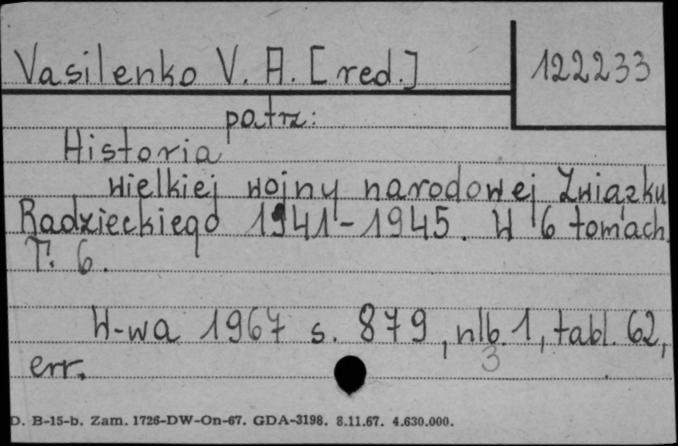 Vasilenko V. A. [red.]
122233
patrz:
Historia
wielkiej wojny narodowej Związku
Radzieckiego 1941-1945. W 6 tomach.
T. 6.
W-wa 1967 s. 879, nlb. 1, tabl. 62,
3
err.
D. B-15-b. Zam. 1726-DW-On-67. GDA-3198. 8.11.67. 4.630.000.